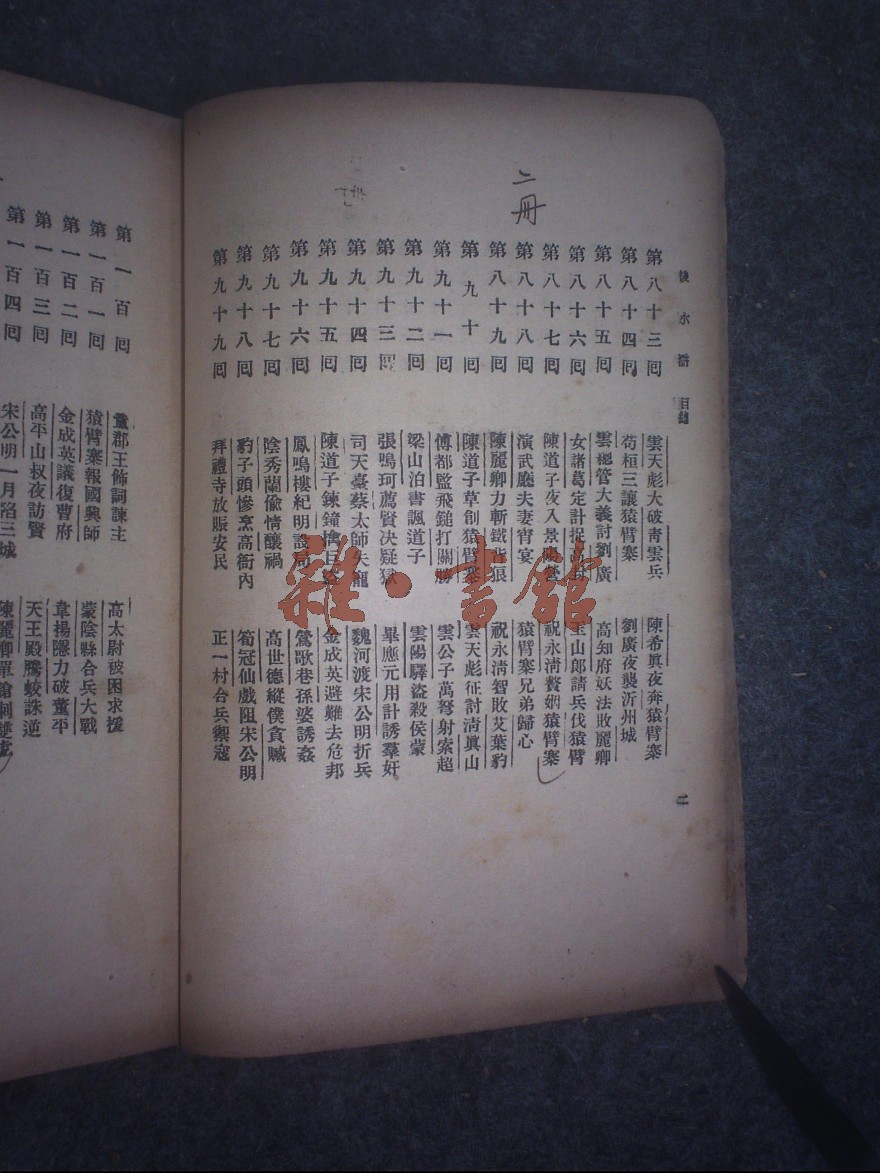 二冊
後水滸 目錄
第八十三囘 雲天彪大破靑雲兵 陳希眞夜奔猿臂寨
第八十四囘 苟桓三讓猿臂寨 劉廣夜襲沂州城
第八十五囘 雲總管大義討劉廣 高知府妖法敗麗卿
第八十六囘 女諸葛定計捉高封 玉山郎請兵伐猿臂
第八十七囘 陳道子夜入景陽營 祝永淸贅姻猿臂寨
第八十八囘 演武廳夫妻宵宴 猿臂寨兄弟歸心
第八十九囘 陳麗卿力斬鐵背狼 祝永淸智敗艾葉豹
第九十囘 陳道子草創猿臂寨 雲天彪征討淸眞山
第九十一囘 傅都監飛鎚打關勝 雲公子萬弩射索超
第九十二囘 梁山泊書諷道子 雲陽驛盜殺侯蒙
第九十三囘 張鳴珂薦賢決疑獄 畢應元用計誘羣奸
第九十四囘 司天臺蔡太師失寵 魏河渡宋公明折兵
第九十五囘 陳道子鍊鐘擒巨盜 金成英避難去危邦
第九十六囘 鳳鳴樓紀明設局 鶯歌巷孫婆誘姦
第九十七囘 陰秀蘭偸情釀禍 高世德縱僕貪贓
第九十八囘 豹子頭慘烹高衙內 筍冠仙戲阻宋公明
第九十九囘 拜禮寺放賑安民 正一村合兵禦寇
二
第一百囘 童郡王飾詞諫主 高太尉被困求援
第一百一囘 猿臂寨報國興師 蒙陰縣合兵大戰
第一百二囘 金成英議復曹府 韋揚隱力破董平
第一百三囘 高平山叔夜訪賢 天王殿騰蛟誅逆
第一百四囘 宋公明一月陷三城 陳麗卿單鎗刺雙
雜·書館